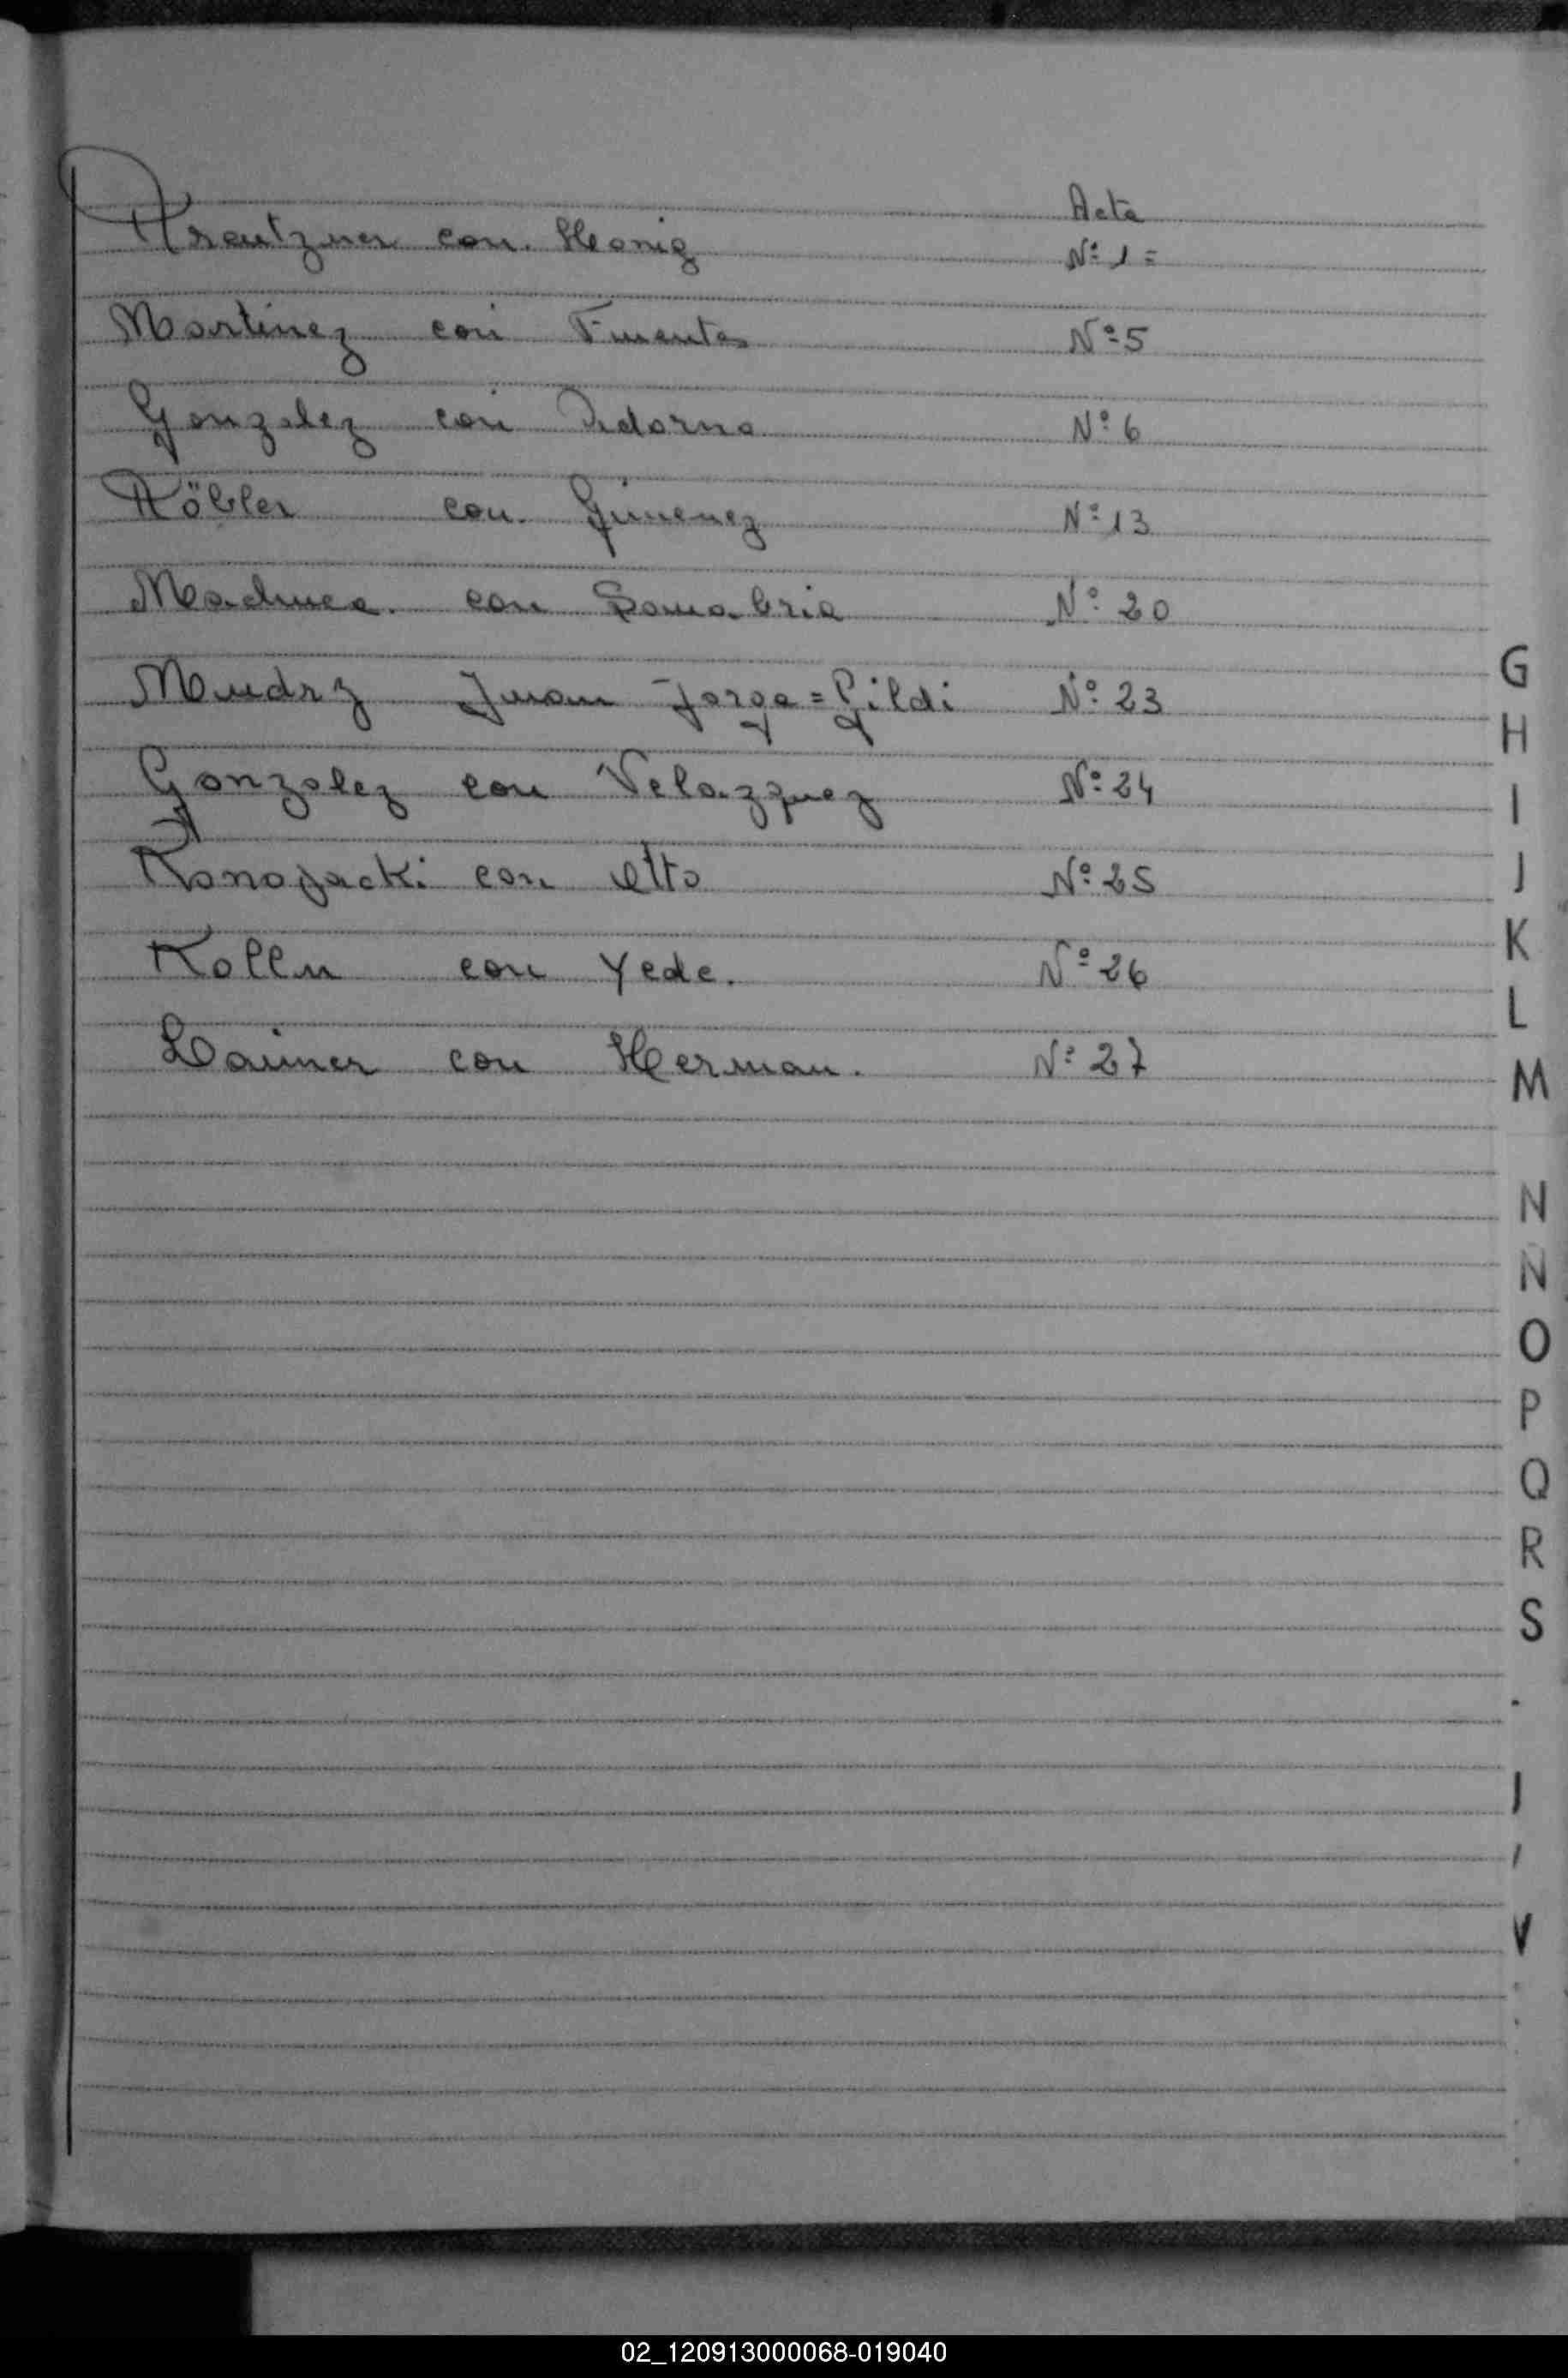 Acta
Kreutzner con. Honig Nº 1 =
Martinez con Fuentes Nº 5
Gonzalez con Adorno Nº 6
Köbler con. Gimenez Nº 13
con Samabria Nº 20
Mudrz Juan Jorge = Gildi Nº 23
Gonzalez con Velazquez Nº 24
Konojacki con Otto Nº 25
Kolln con Yede. Nº 26
Laimer con Herman. Nº 27
G
H
I
J
K
L
M
N
N
O
P
Q
R
S
V
02_120913000068-019040